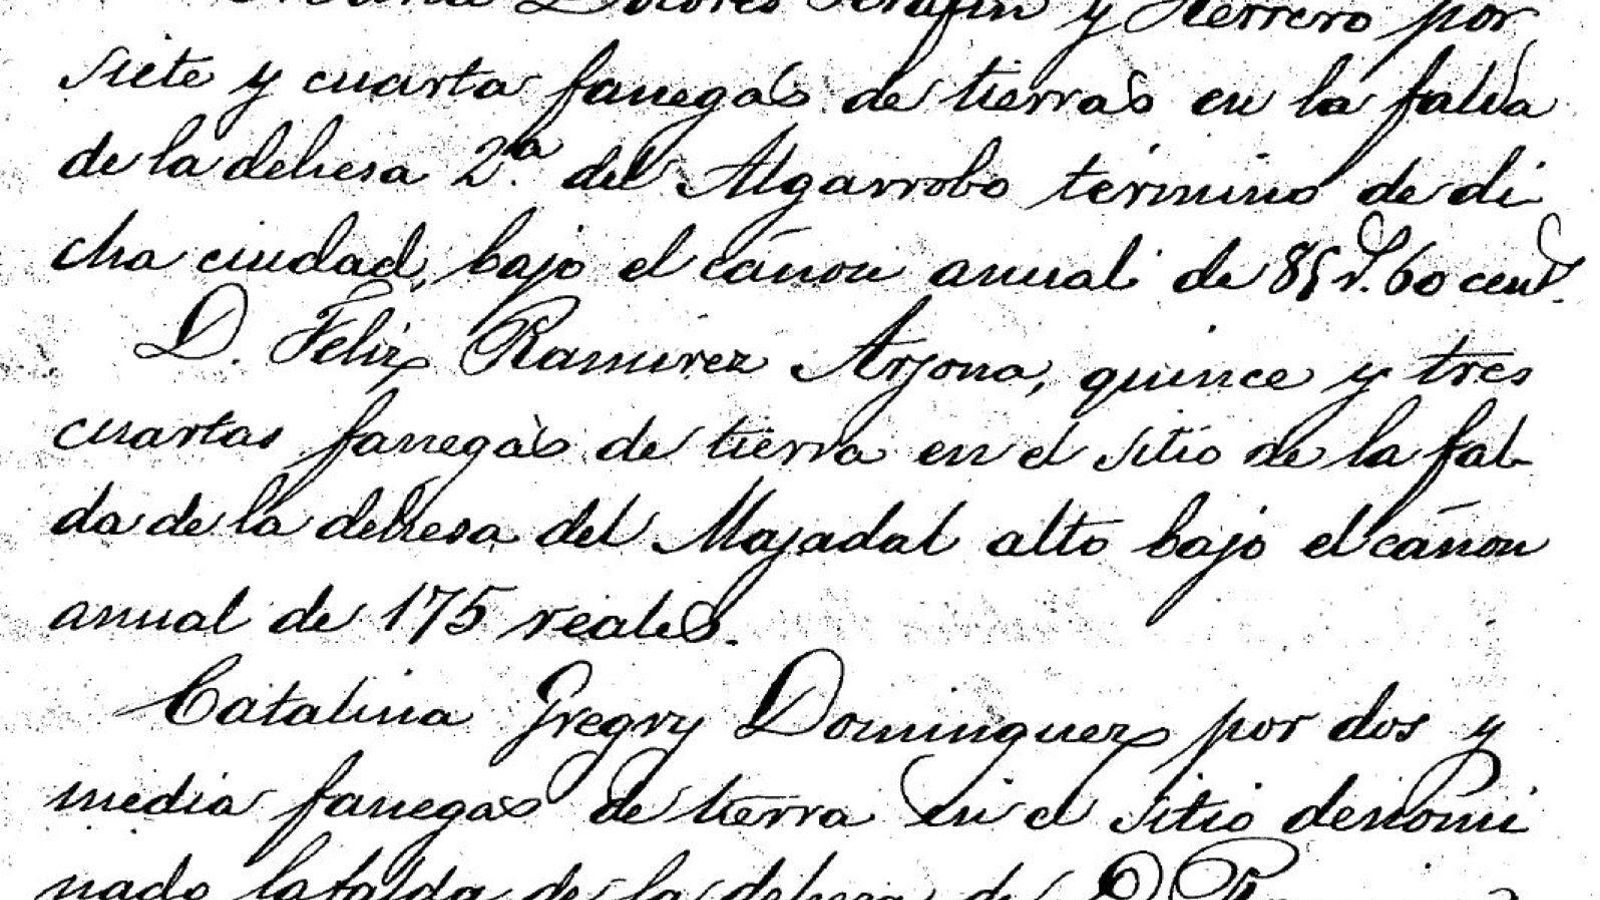 Maria Dolores Serafin y Herrero por
siete y cuarta fanegas de tierras en la falda
de la dehesa 2.ª del Algarrobo término de di
cha ciudad, bajo el cánon anual de 85 r.s 60 cent.s
D. Felix Ramirez Arjona, quince y tres
cuartas fanegas de tierra en el sitio de la fal-
da de la dehesa del Majadal alto bajo el cánon
anual de 175 reales.
Catalina Gregory Dominguez por dos y
media fanegas de tierra en el sitio denomi
nado la falda de la dehesa de D.